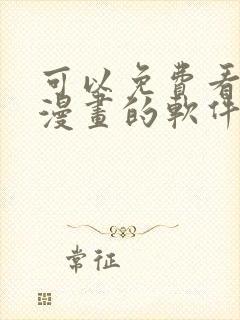 可以免費看
漫畫的軟件
常征